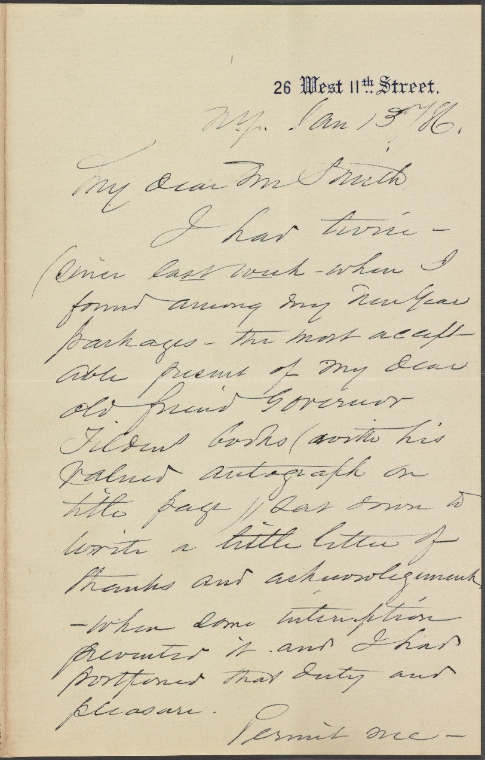 26 West 11th Street.
N.Y. Jan 13th/86.
My dear Mr Smith
I had twice -
(since last week - when I
found among my New Year
packages - the most accept-
able present of my dear
old friend Governor
Tildens books (with his
valued autograph on
title page)) sat down to
write a little letter of
thanks and acknowledgement
- when some interruption
prevented it and I had
postponed that duty and
pleasure.
Permit me -